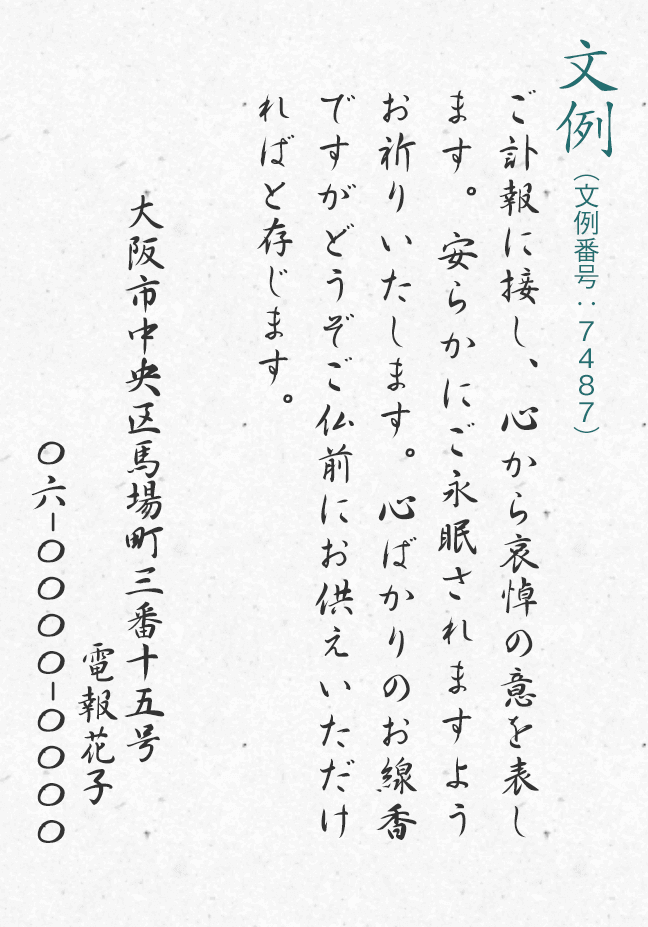 文例(文例番号:7487)
ご訃報に接し、心から哀悼の意を表し
ます。安らかにご永眠されますよう
お祈りいたします。心ばかりのお線香
ですがどうぞご仏前にお供えいただけ
ればと存じます。
大阪市中央区馬場町三番十五号
電報花子
〇六-〇〇〇〇-〇〇〇〇